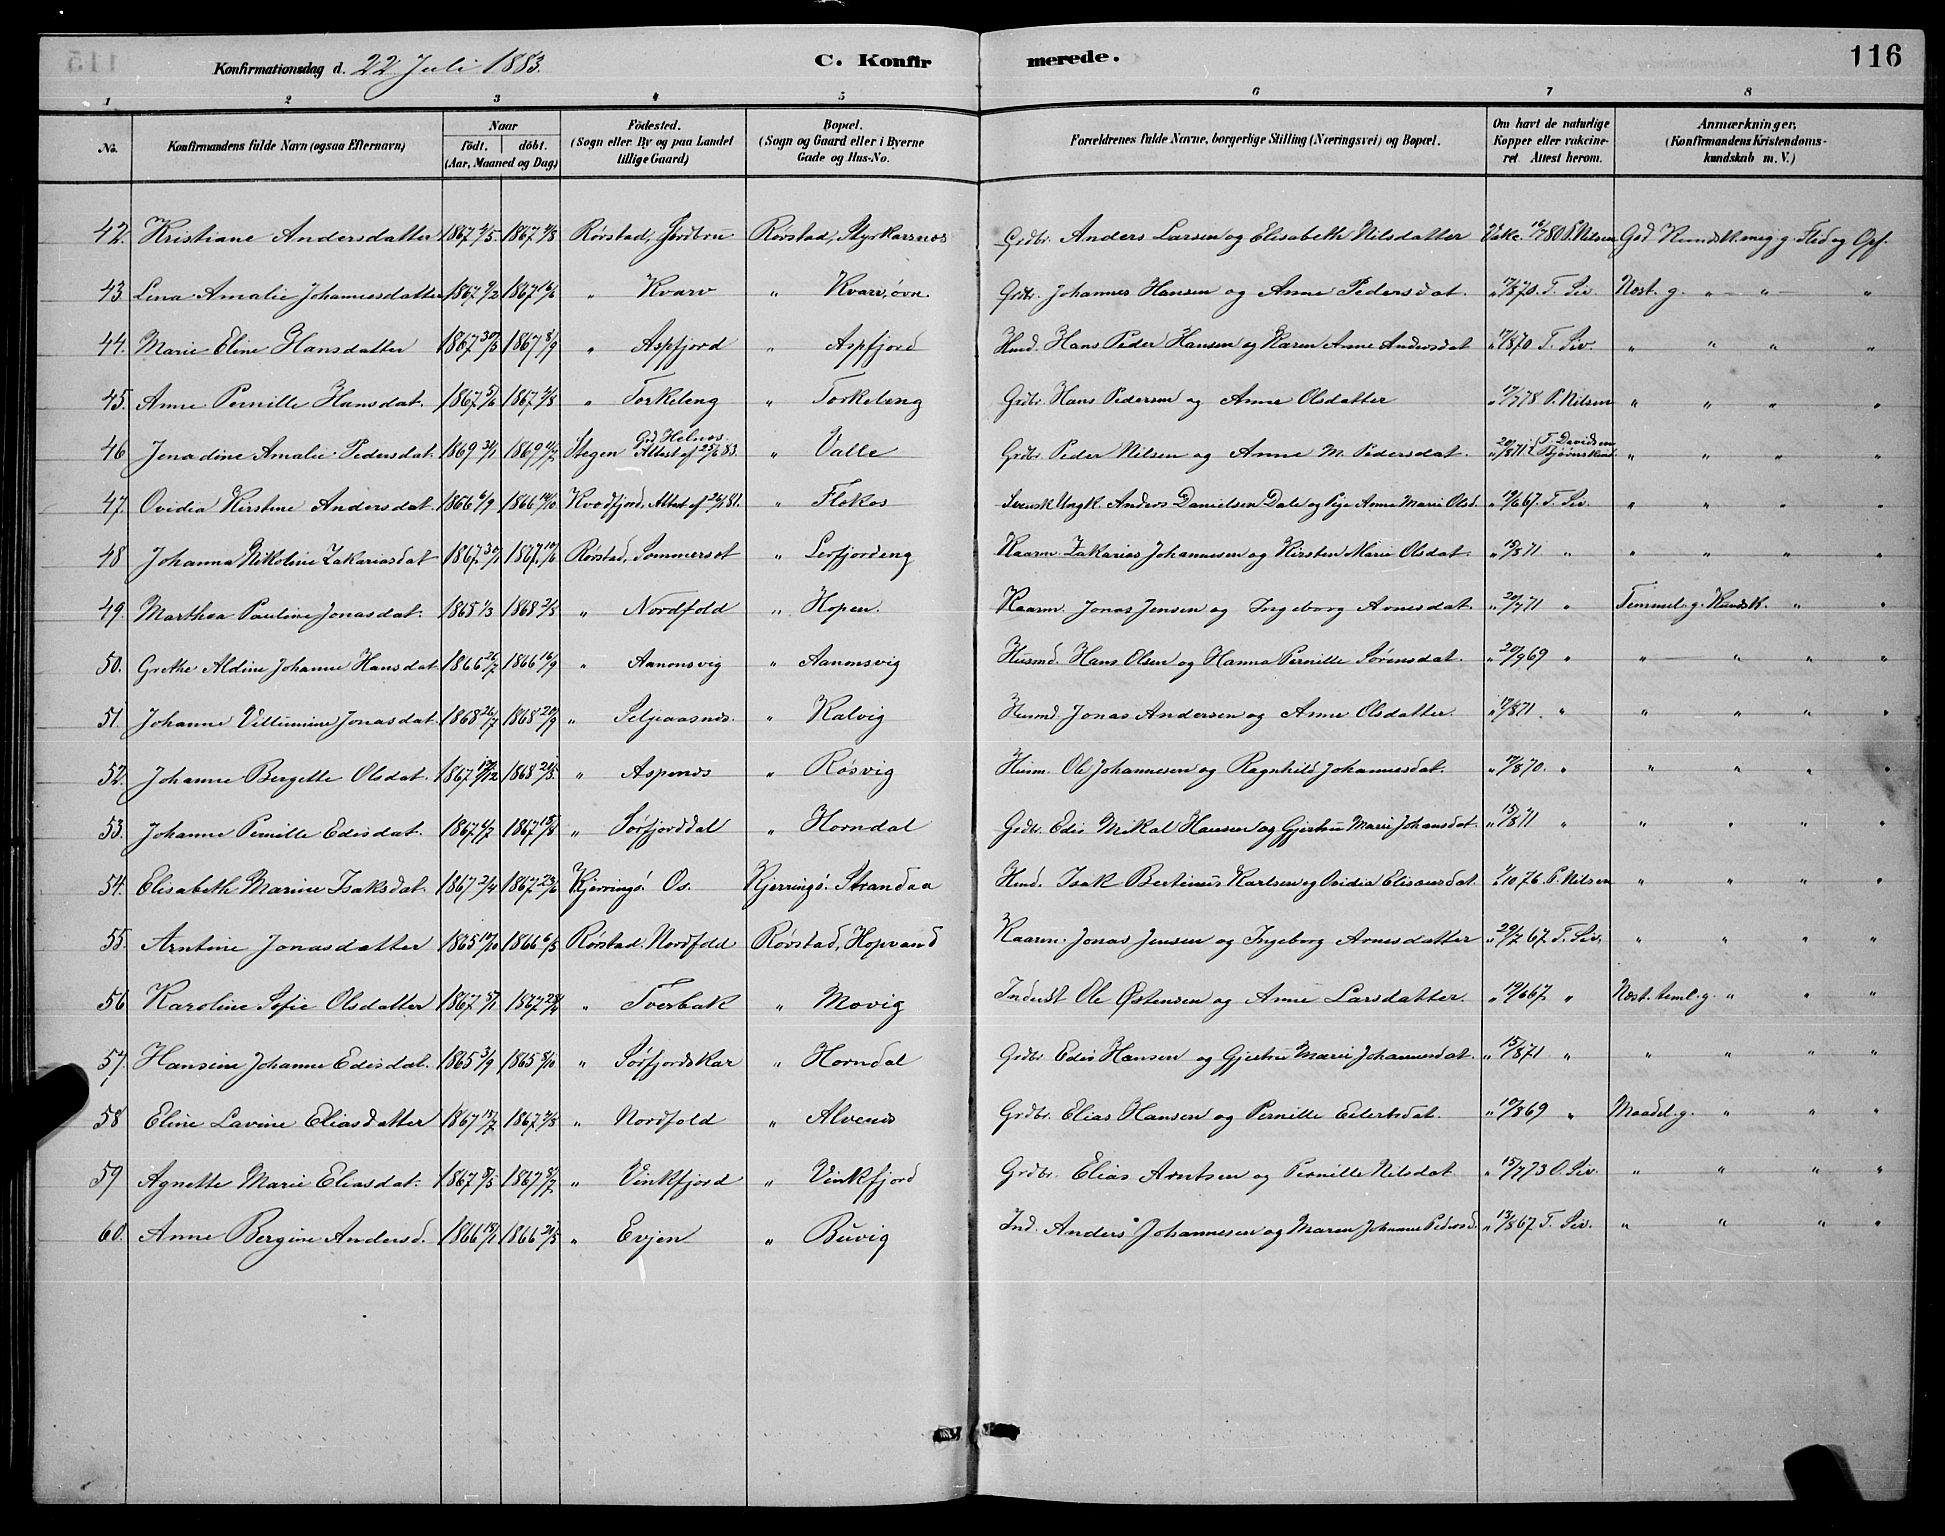 Konfirmationsdag d. 22 Juli 1883.
C. Konfirmerede.
116
1 2 3 4 5 6 7 8
No.
Konfirmandens fulde Navn (ogsaa Efternavn)
Naar
födt. döbt.
(Aar, Maaned og Dag)
Födested.
(Sogn eller By og paa Landet
tillige Gaard)
Bopæl.
(Sogn og Gaard eller i Byerne
Gade og Hus-No.
Forældrenes fulde Navne, borgerlige Stilling (Næringsvei) og Bopæl.
Om havt de naturlige
Kopper eller vakcine-
ret. Attest herom.
Anmærkninger,
(Konfirmandens Kristendoms-
kundskab m. V.)
42. Kristiane Andersdatter 1867 4/5. 1867 4/8 Rörstad, Jördbru Rörstad, Styrkarsnes Grdbr. Anders Larsen og Elisabeth Nilsdatter Vakc. 16/7 80 P. Nilsen God Kundsk. meg. g. Flid og Opf.
43. Lina Amalie Johannesdatter 1867 9/2 1867 16/6 " Kvarv " Kvarv, övre Grdbr. Johannes Hansen og Anne Pedersdat. " 17/8 70. T. Siv. Næst. g. " " "
44. Marie Eline Hansdatter 1867 30/5 1867 8/9 " Aspfjord " Aspfjord Hmd. Hans Peder Hansen og Karen Anne Andersdat " 17/8 70 T. Siv. " " " "
45. Anne Pernille Hansdat. 1867 5/6 1867 4/8 " Torkeleng " Torkeleng Grdbr. Hans Pedersen og Anne Olsdatter " 17/7 78 P. Nilsen " " " "
46 Jenadine Amalie Pedersdat. 1869 31/1 1869 11/7 Stegen Grd Helnes Attest af 25/6 83. " Valle Grdbr. Peder Nilsen og Anne M. Pedersdat. " 20/8 71 T. Davidsen " " " "
47. Ovidia Kirstine Andersdat. 1866 6/9 1866 14/10 Kvædfjord, Attest af 26/7 81. " Flokos Svensk Ungk. Anders Danielsen Dale og Pige Anne Marie Olsd. " 19/6 67. T. Siv. " " " "
48 Johanna Nikoline Zakariasdat 1867 30/1 1867. 10/6 Rörstad, Sommerset " Lerfjordeng Kaarm. Zakarias Johannesen og Kirsten Marie Olsdat. " 15/8 71 " " " " "
49. Marthea Pauline Jonasdat. 1865 1/3 1868 2/8 " Nordfold " Hopen. Kaarm. Jonas Jensen og Ingeborg Arnesdat. " 20/7 71 " Temmel. g. Kundsk. " "
50. Grethe Aldine Johanne Hansdat. 1866 26/7 1866 16/9 " Aanonsvig " Aanonsvig Husmd. Hans Olsen og Hanna Pernille Sörensdat. " 20/9 69 " " " " "
51. Johanne Villumine Jonasdat. 1868 26/7 1868 20/9 " Seljeaasnes. " Kalvig Husmd. Jonas Andersen og Anne Olsdatter. " 17/8 71. " " " " "
52. Johanne Bergette Olsdat. 1867 1868 21/5. " Aspenes " Rösvig Husm. Ole Johannesen og Ragnhild Johannesdat. " 17/8 70. " " " " "
53. Johanne Pernille Edisdat. 1867 4/7 1867 18/8 " Sörfjorddal " Horndal Grdbr. Edis Mikal Hansen og Gjertru Marie Johansdat. " 15/8 71 " " " " "
54. Elisabeth Marine Isaksdat. 1867 2/4 1867 23/6 Kjerringö. Os. Kjerringö. Strandaa Hmd. Isak Bertinus Karlsen og Ovidia Elisæusdat. " 6/10 76. P. Nilsen " " " "
55. Arntine Jonasdatter 1865 19/10 1866 6/5 Rörstad, Nordfold Rörstad, Hopvand Kaarm. Jonas Jensen og Ingeborg Arnesdatter " 29/7 67. T. Siv. " " " "
56 Karoline Sofie Olsdatter 1867. 5/1 1867 28/4 " Tverbak " Movig Inderst Ole Östensen og Anne Larsdatter. " 19/6 67. " Næst. teml. g. " " "
57. Hansine Johanne Edisdat. 1865 3/9 1865 8/10 " Sörfjordskar " Horndal Grdbr. Edis Hansen og Gjertru Marie Johannesdat. " 15/8 71 " " " " "
58 Eline Lavine Eliasdatter 1867 13/2 1867 3/5 " Nordfold " Alvenes Grdbr. Elias Hansen og Pernille Eilertsdat. " 10/8 69 " Maadel. g. " " "
59 Agnette Marie Eliasdat. 1867 8/5 1867 8/7 " Vinkfjord " Vinkfjord Grdbr. Elias Arntsen og Pernille Nilsdat " 15/7 73 O. Siv. " " " "
60. Anne Bergine Andersd. 1866 18/1 1866 21/5 " Evjen " Buvig Ind. Anders Johannesen og Maren Johanne Pedersd. " 13/8 67. T. Siv. " " " "